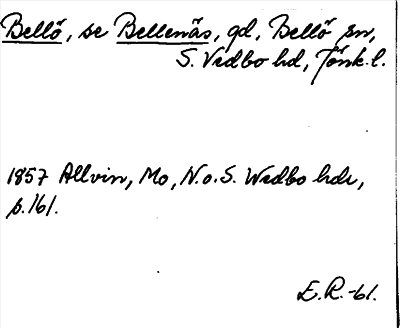 Bellö, se Bellenäs, gd, Bellö sn,
S. Vedbo hd, Jönk.l.
1857 Allvin, Mo, N.o.S. Wedbo hdr,
p.161.
E.R.-61.